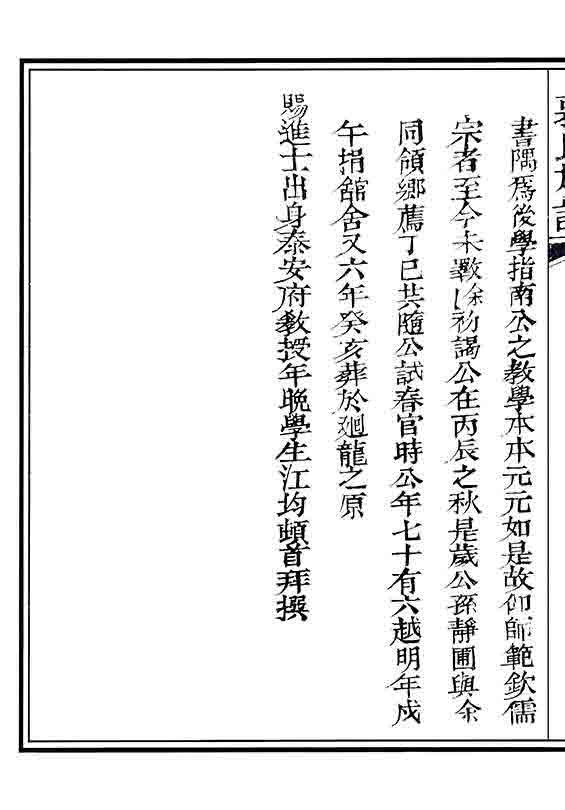 書隅爲後學指南公之教學本本元元如是故仰師範欽儒
宗者至今未斁余初謁公在丙辰之秋是歲公孫靜圃與余
同領鄉薦丁巳共隨公試春官時公年七十有六越明年戊
午捐館舍又六年癸亥葬於廻龍之原
賜進士出身泰安府教授年晚學生江均頓首拜撰